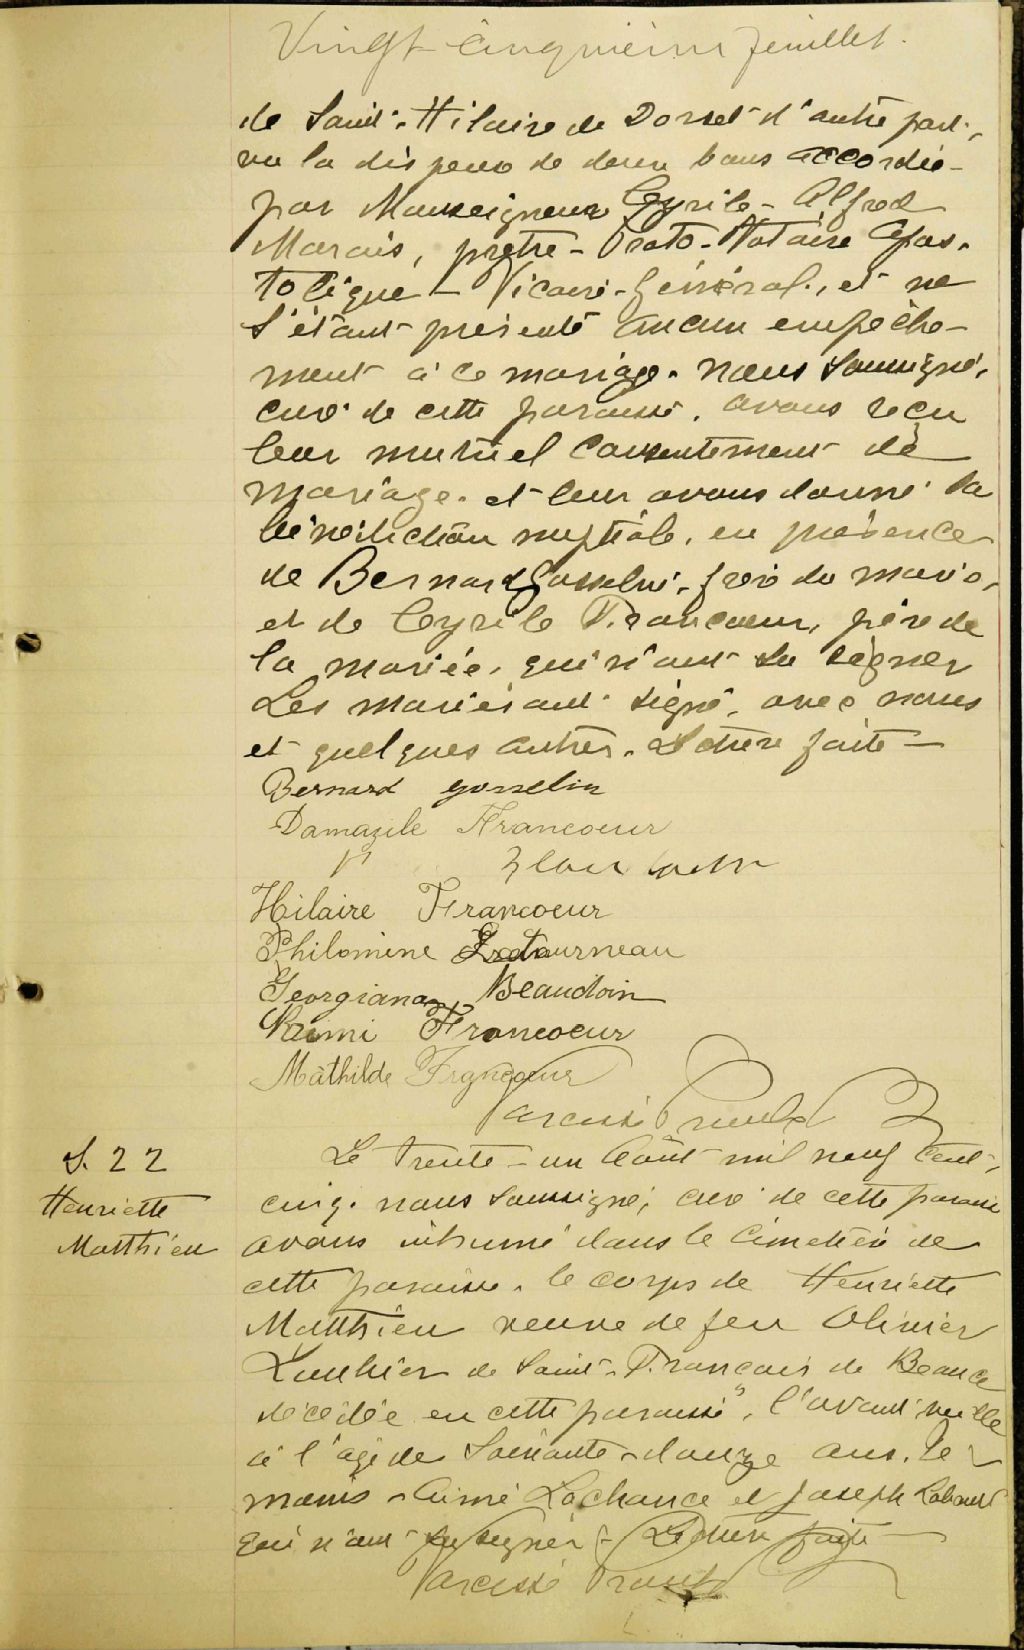 Vingt cinquième feuillet.
de Saint-Hilaire de Dorset d'autre part,
vu la dispense de deux bans accordée
par Monseigneur Cyrile-Alfred
Marois, prêtre-Proto-Notaire Apos-
tolique - Vicaire-Général, et ne
s'étant présenté aucun empêche-
ment à ce mariage. nous soussigné,
curé de cette paroisse, avons reçu
leur mutuel consentement de
mariage. et leur avons donné la
bénédiction nuptiale, en présence
de Bernard Gosselin, frère du marié,
et de Cyrile Francoeur, père de
la mariée, qui n'ont su signer
Les mariés ont signé, avec nous
et quelques autres. Lecture faite -
Bernard gosselin
Damazile Francoeur
Hilaire Francoeur
Philomine Letourneau
Georgiana Beaudoin
Francoeur
Mathilde Francoeur
Narcisse Proulx
S. 22
Henriette
Matthieu
Le trente-un Août mil neuf cent,
cinq. nous soussigné, curé de cette paroisse
avons inhumé dans le cimetière de
cette paroisse. le corps de Henriette
Matthieu veuve de feu Olivier
de Saint-François de Beauce
décédée en cette paroisse, l'avant veille
à l'age de soixante-douze ans.
Aimé Lachance et Joseph
qui n'ont su signer - Lecture faite
Narcisse Proulx